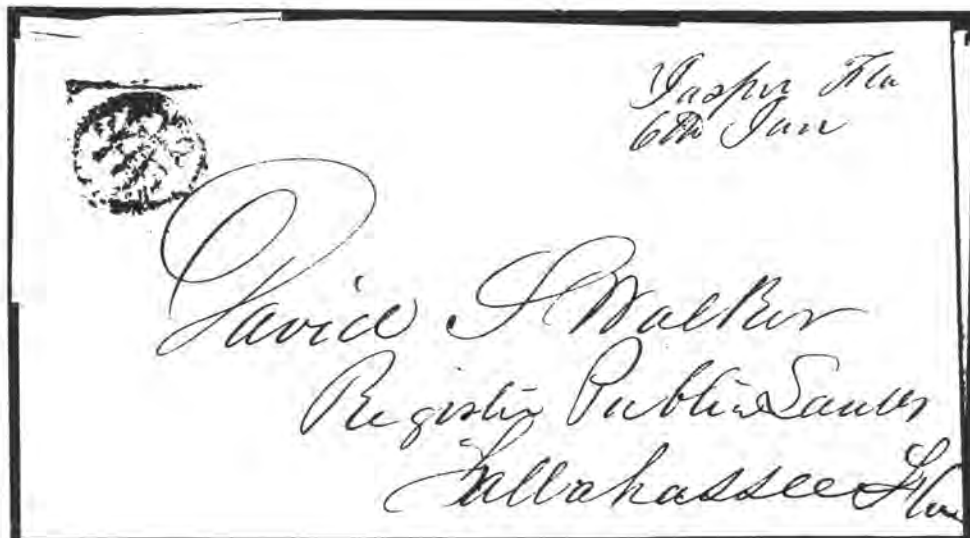 Jasper Fla
6th Jan
David S Walker
Register Public Lands
Tallahassee Fla